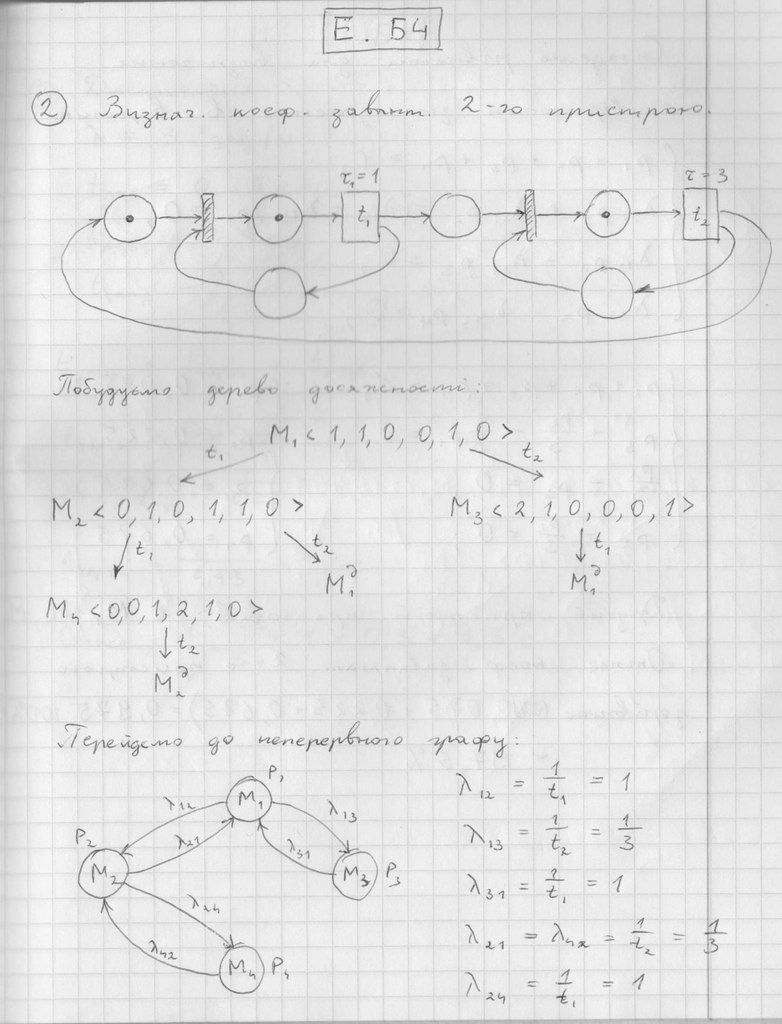 Е. Б4
② Визнач. коеф. завант. 2-го пристрою.
τ₁ = 1
τ = 3
t₁
t₂
Побудуємо дерево досяжності:
M₁ < 1, 1, 0, 0, 1, 0 >
t₁
t₂
M₂ < 0, 1, 0, 1, 1, 0 >
M₃ < 2, 1, 0, 0, 0, 1 >
t₁
t₂
t₁
M₁ᵈ
M₁ᵈ
M₄ < 0, 0, 1, 2, 1, 0 >
t₂
M₂ᵈ
Перейдемо до неперервного графу:
P₁
M₁
λ₁₂
λ₂₁
λ₁₃
λ₃₁
P₂
M₂
M₃
P₃
λ₂₄
λ₄₂
M₄
P₄
λ₁₂ = 1/t₁ = 1
λ₁₃ = 1/t₂ = 1/3
λ₃₁ = 1/t₁ = 1
λ₂₁ = λ₄₂ = 1/t₂ = 1/3
λ₂₄ = 1/t₁ = 1